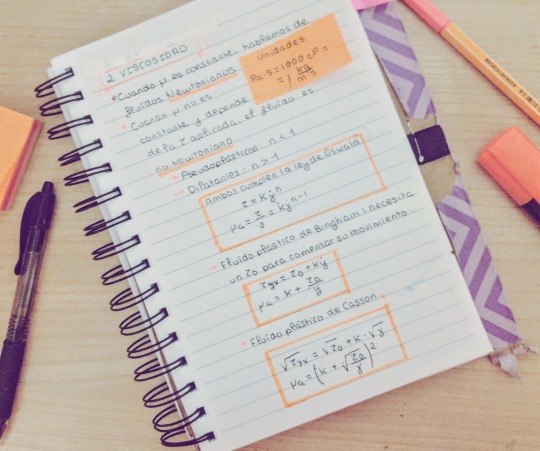 2. VISCOSIDAD
• Cuando μ es constante, hablamos de
fluidos Newtonianos
Unidades
Pa·s = 1000 cP =
= 1 kg/m·s
• Cuando μ no es
constante y depende
de la τ aplicada, el fluido es
no Newtoniano
- Pseudoplásticos: n < 1
- Dilatantes: n > 1
Ambos cumplen la ley de Oswald
τ = Kγ̇ⁿ
μa = τ/γ̇ = kγ̇ⁿ⁻¹
- Fluido plástico de Bingham: necesita
un τ₀ para comenzar su movimiento
τyx = τ₀ + kγ̇
μa = k + τ₀/γ̇
- Fluido plástico de Casson.
√τyx = √τ₀ + k·√γ̇
μa = (k + √(τ₀/γ̇))²